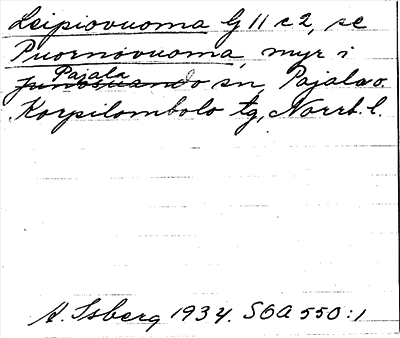 Leipiovuoma G 11 c 2, se
Puornovuoma, myr i
Pajala
Junosuando sn, Pajala o.
Korpilombolo tg, Norrb. l.
A. Isberg 1934. SOA 550:1